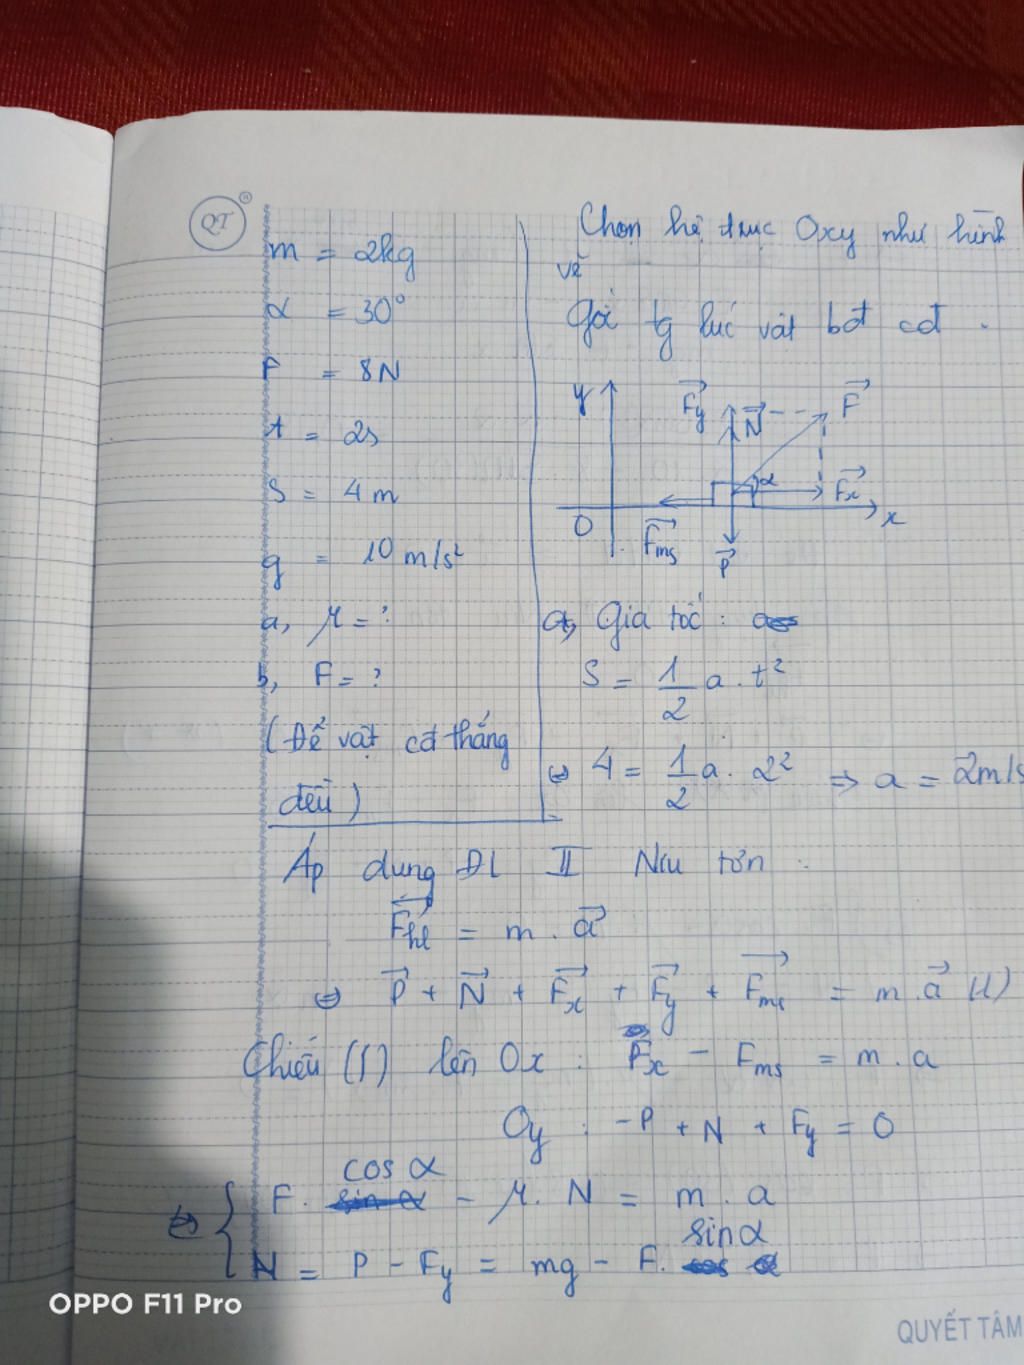 QT
m = 2kg
α = 30°
F = 8N
t = 2s
S = 4m
g = 10 m/s²
a, μ = ?
b, F = ?
(Để vật cđ thẳng
đều)
Chọn hệ trục Oxy như hình
vẽ
Gốc tg lúc vật bđ cđ.
y
F⃗y
N⃗
F⃗
α
F⃗x
O
F⃗ms
P⃗
x
a, Gia tốc:
S = 1/2 a . t²
⇔ 4 = 1/2 a . 2² ⇒ a = 2m/s
Áp dụng ĐL II Niu tơn :
F⃗hl = m . a⃗
⇔ P⃗ + N⃗ + F⃗x + F⃗y + F⃗ms = m . a⃗ (1)
Chiếu (1) lên Ox : Fx - Fms = m . a
Oy : -P + N + Fy = 0
⇔ { F . cos α - μ . N = m . a
N = P - Fy = mg - F . sin α
OPPO F11 Pro
QUYẾT TÂM